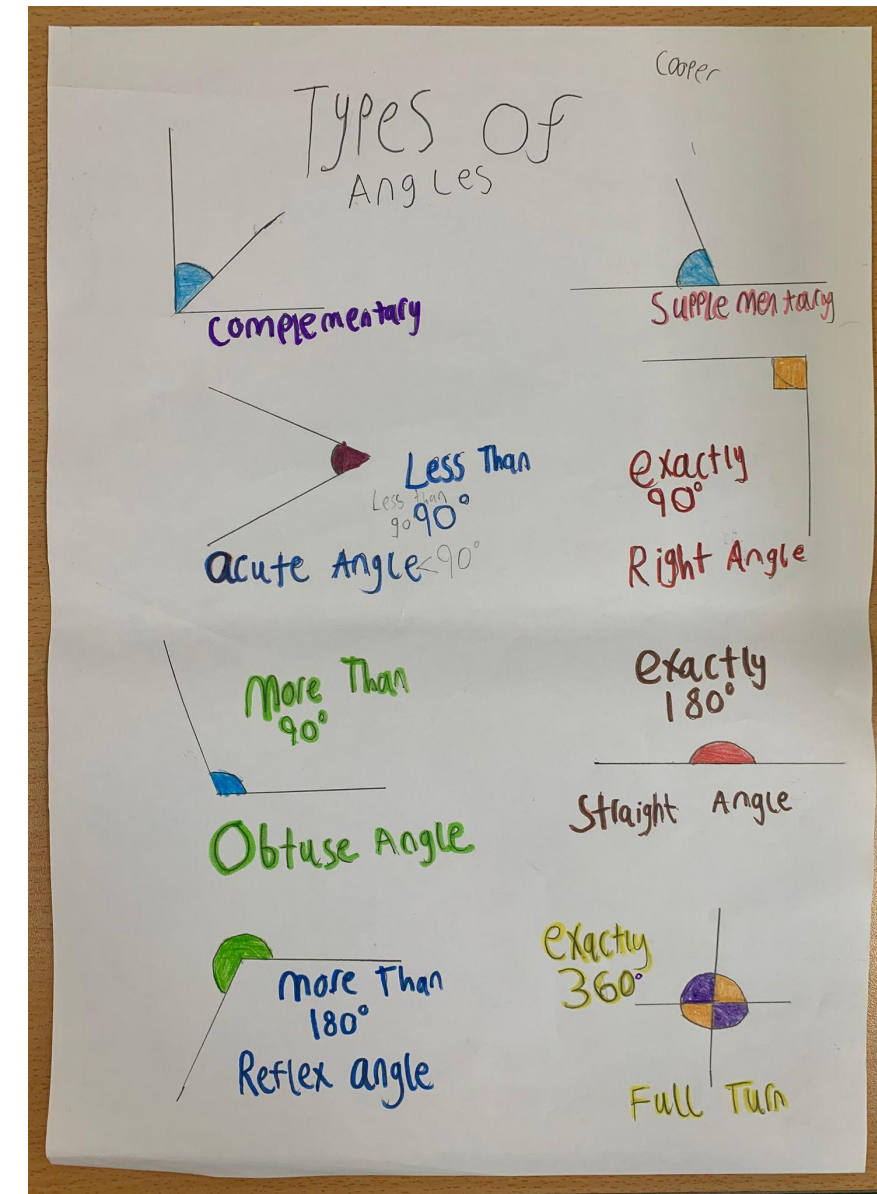 Cooper
Types of
Angles
Complementary
Supplementary
Less Than
90°
Less than
90
acute Angle <90°
exactly
90°
Right Angle
More Than
90°
Obtuse Angle
exactly
180°
Straight Angle
more Than
180°
Reflex angle
exactly
360°
Full Turn